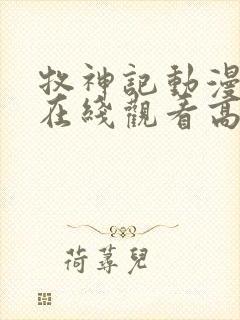 牧神記動漫
在綫觀看高
荷蕁兒